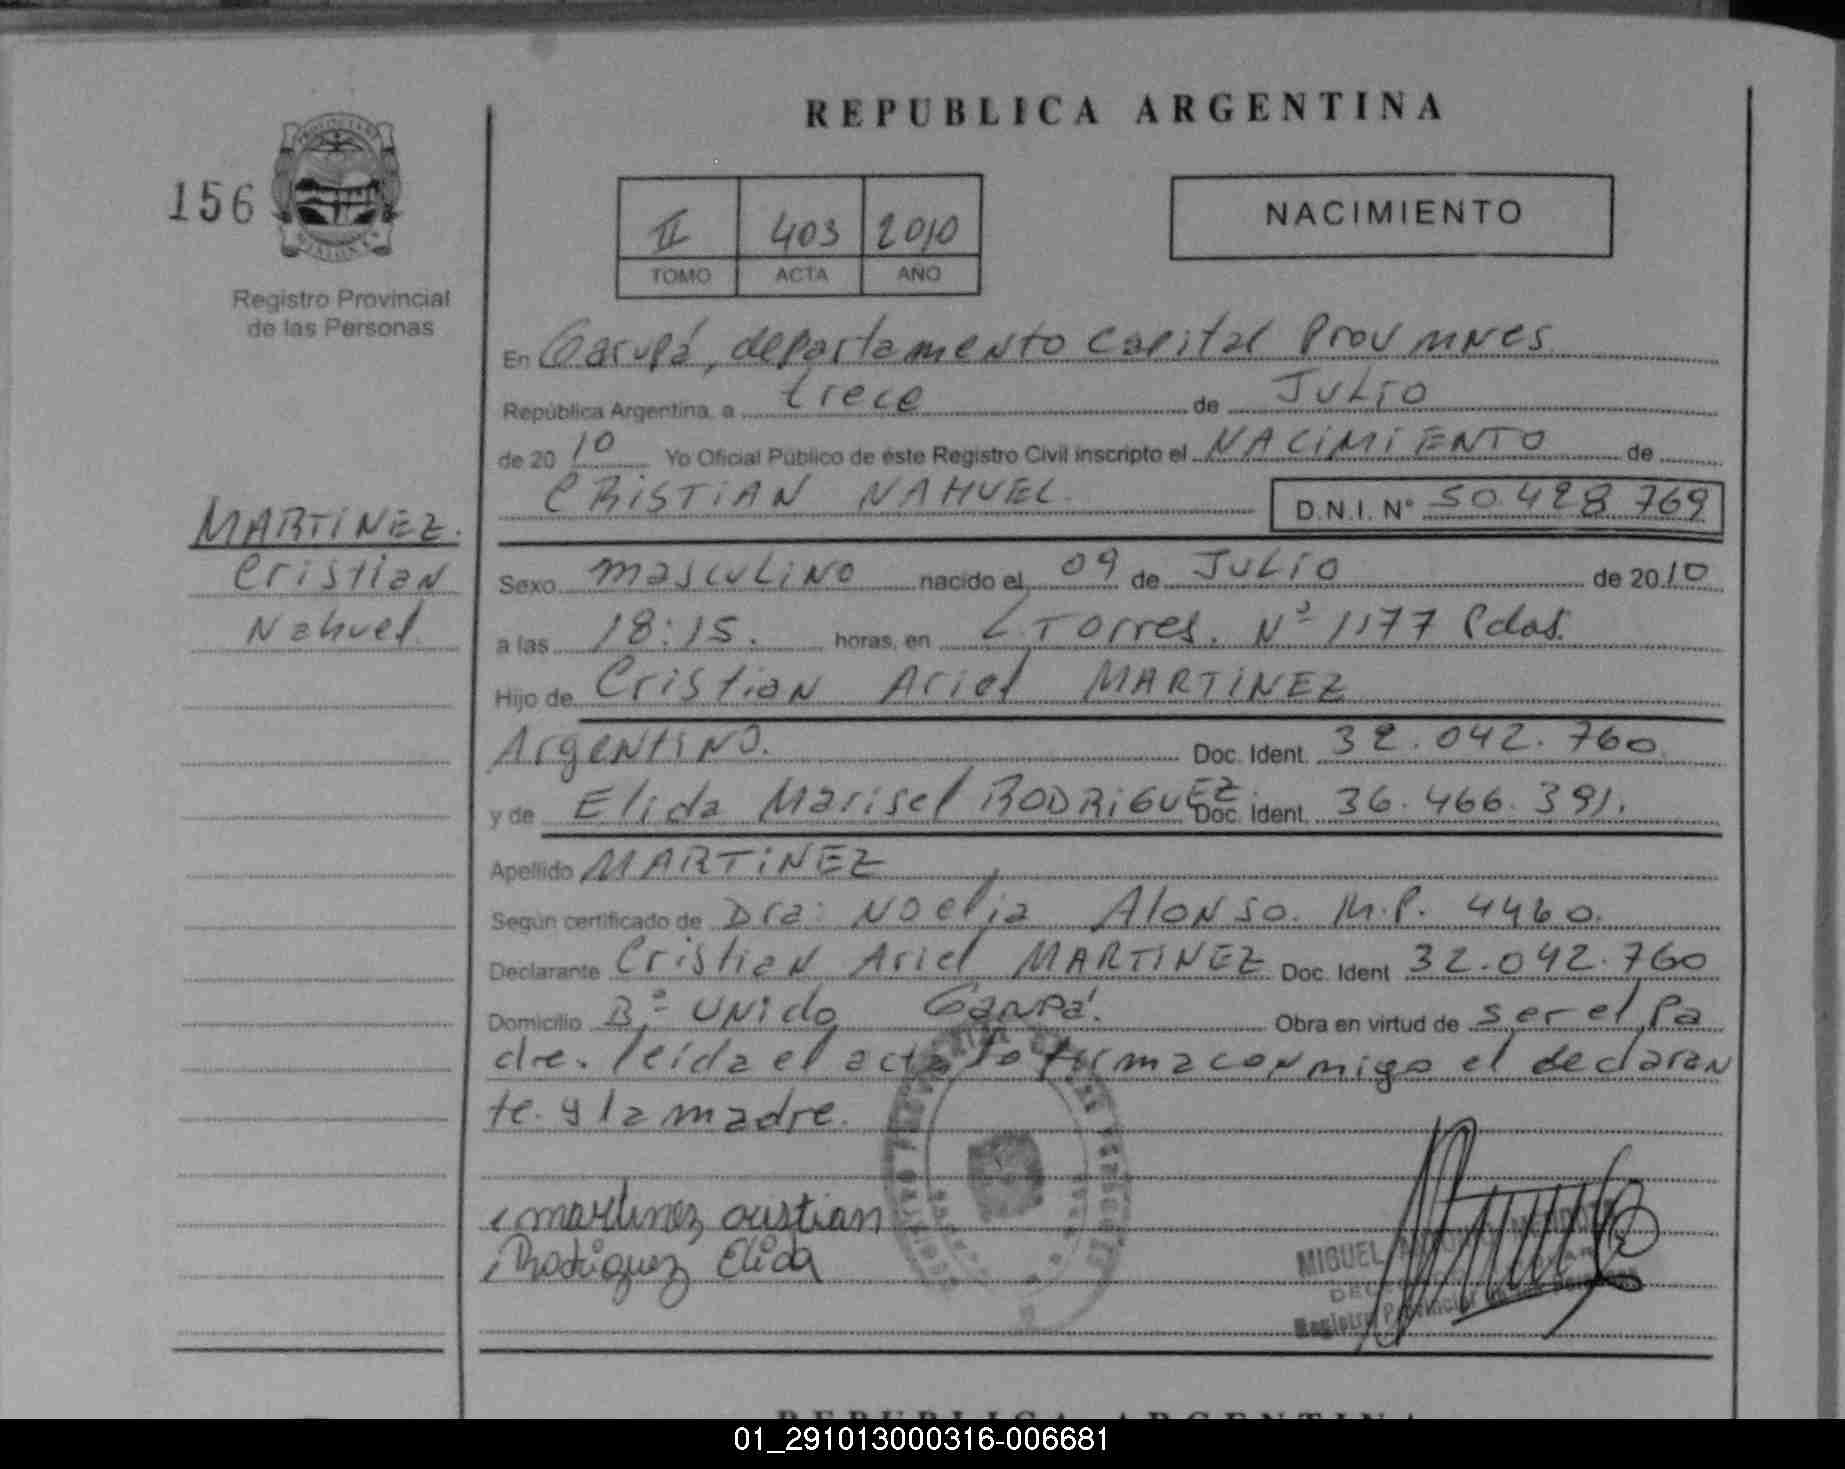 REPUBLICA ARGENTINA
156
II 403 2010
TOMO ACTA AÑO
NACIMIENTO
Registro Provincial
de las Personas
En Garupá, departamento Capital Prov mnes
República Argentina, a trece de JULIO
de 2010 Yo Oficial Público de éste Registro Civil inscripto el NACIMIENTO de
CRISTIAN NAHUEL. D.N.I. N° 50.428.769
MARTINEZ.
Cristian
Nahuel.
Sexo masculino nacido el 09 de JULIO de 2010
a las 18:15. horas, en L. Torres. Nº 1177 Pdas.
Hijo de Cristian Ariel MARTINEZ
Argentino. Doc. Ident. 32.042.760
y de Elida Marisel RODRIGUEZ. Doc. Ident. 36.466.391.
Apellido MARTINEZ
Según certificado de Dra: Noelia Alonso. M.P. 4460.
Declarante Cristian Ariel MARTINEZ Doc. Ident 32.042.760
Domicilio Bº Unido Garupá. Obra en virtud de ser el Pa
dre. leída el acta la firma conmigo el declaran
te. y la madre.
martinez cristian
Rodriguez Elida
MIGUEL
Registro Provincial de las Personas
REPUBLICA ARGENTINA
01_291013000316-006681